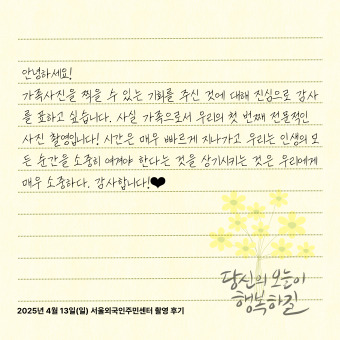 안녕하세요!
가족사진을 찍을 수 있는 기회를 주신 것에 대해 진심으로 감사
를 표하고 싶습니다. 사실 가족으로서 우리의 첫 번째 전문적인
사진 촬영입니다! 시간은 매우 빠르게 지나가고 우리는 인생의 모
든 순간을 소중히 여겨야 한다는 것을 상기시키는 것은 우리에게
매우 소중하다. 감사합니다!❤
당신의 오늘이
행복하길
2025년 4월 13일(일) 서울외국인주민센터 촬영 후기